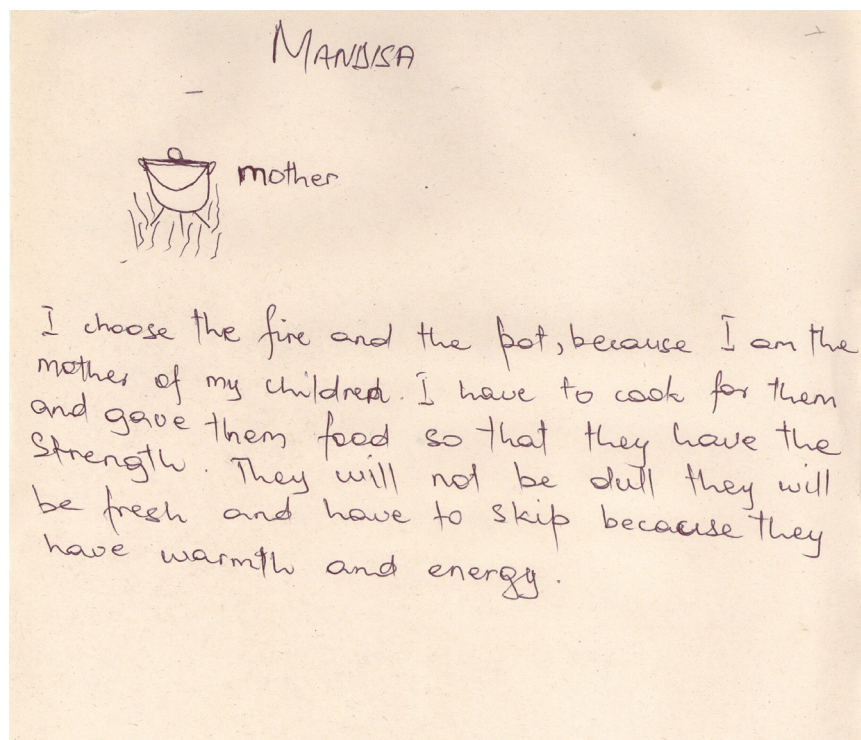 MANDISA
mother
I choose the fire and the pot, because I am the
mother of my children. I have to cook for them
and gave them food so that they have the
strength. They will not be dull they will
be fresh and have to skip because they
have warmth and energy.